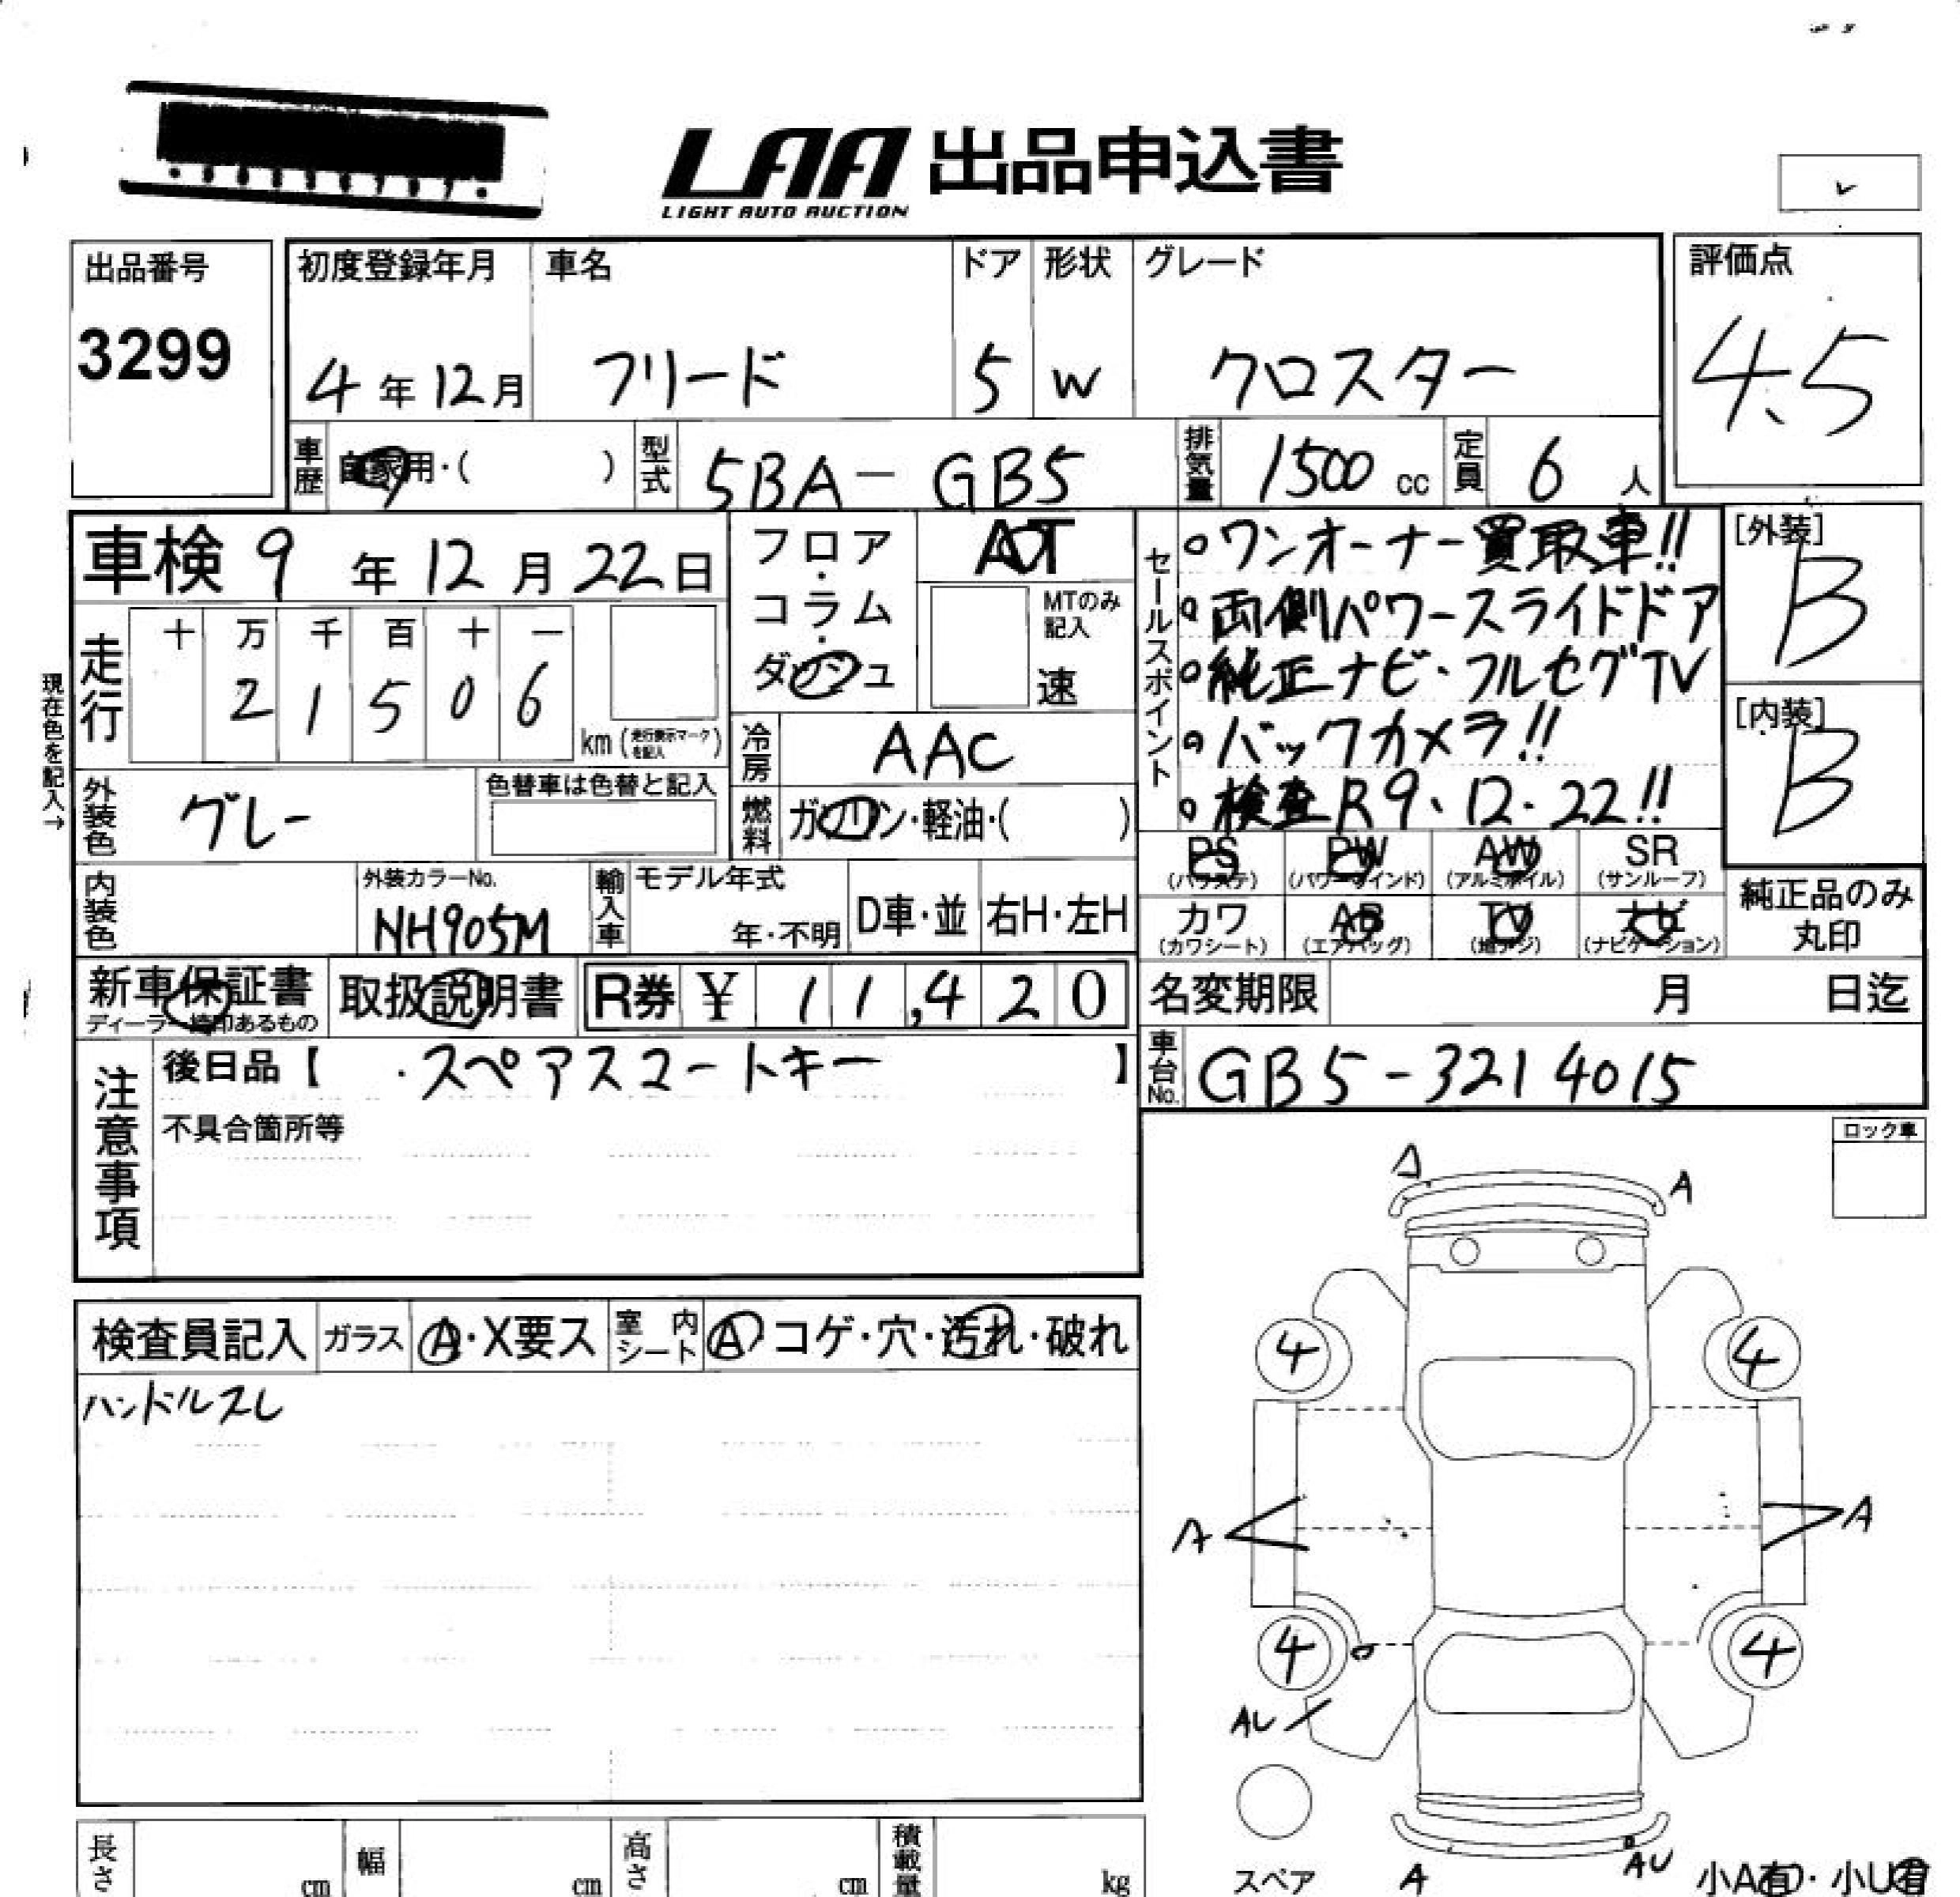 LAA 出品申込書
LIGHT AUTO AUCTION
出品番号
3299
初度登録年月
4年12月
車名
フリード
ドア
5
形状
W
グレード
クロスター
評価点
4.5
車歴
自家用・( )
型式
5BA-GB5
排気量
1500 cc
定員
6人
車検 9年12月22日
フロア・コラム・ダッシュ
AT
MTのみ記入
速
セールスポイント
○ワンオーナー買取車!!
○両側パワースライドドア
○純正ナビ・フルセグTV
○バックカメラ!!
○検査R9.12.22!!
[外装]
B
[内装]
B
現在色を記入→
走行
十 万 千 百 十 一
2 1 5 0 6
km(走行表示マークを記入)
冷房
AAC
外装色
グレー
色替車は色替と記入
燃料
ガソリン・軽油・( )
PS
(パワステ)
PW
(パワーウインド)
AW
(アルミホイル)
SR
(サンルーフ)
カワ
(カワシート)
AB
(エアバッグ)
TV
(地デジ)
ナビ
(ナビゲーション)
純正品のみ丸印
内装色
外装カラーNo.
NH905M
輸入車
モデル年式
年・不明
D車・並
右H・左H
新車保証書
ディーラー捺印あるもの
取扱説明書
R券 ¥ 11,420
名変期限
月 日迄
注意事項
後日品【 ・スペアスマートキー 】
不具合箇所等
車台No.
GB5-3214015
ロック車
A
A
検査員記入
ガラス
A・X要ス
室内シート
A コゲ・穴・汚れ・破れ
ハンドルスレ
4
4
A
A
4
4
AU
スペア
A
AU
小A有・小U有
長さ
cm
幅
cm
高さ
cm
積載量
kg